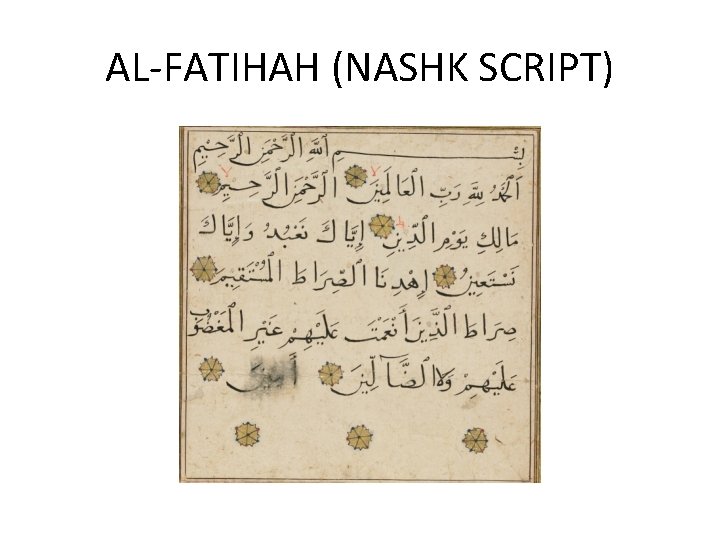 AL-FATIHAH (NASHK SCRIPT)
بِسْمِ اللَّهِ الرَّحْمَنِ الرَّحِيمِ
اَلْحَمْدُ لِلَّهِ رَبِّ الْعَالَمِينَ الرَّحْمَنِ الرَّحِيمِ
مَالِكِ يَوْمِ الدِّينِ إِيَّاكَ نَعْبُدُ وَإِيَّاكَ
نَسْتَعِينُ اِهْدِنَا الصِّرَاطَ الْمُسْتَقِيمَ
صِرَاطَ الَّذِينَ أَنْعَمْتَ عَلَيْهِمْ غَيْرِ الْمَغْضُوبِ
عَلَيْهِمْ وَلَا الضَّآلِّينَ أَمِينَ